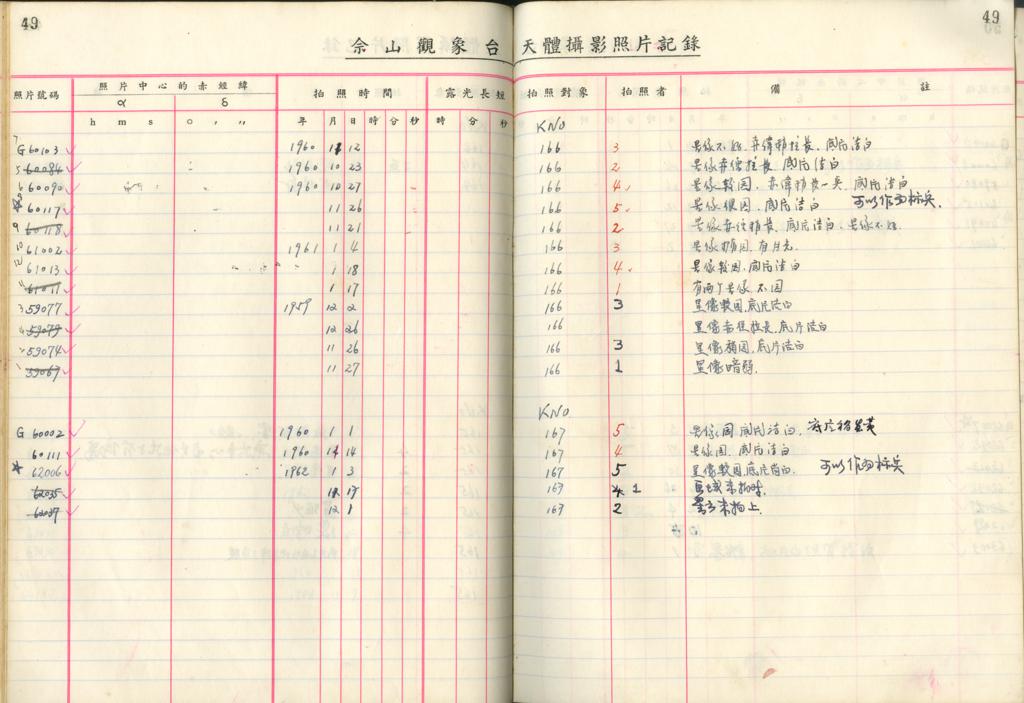 49
49
佘山觀象台天體攝影照片記錄
照片號碼 照片中心的赤經緯 拍照時間 露光長短 拍照對象 拍照者 備 註
α δ
h m s ○ ′ ″ 年 月 日 時 分 秒 時 分 秒
KNO
7 G60103 1960 11 12 166 3 星像不好,赤緯稍拉長,底片潔白
5 60084 1960 10 23 166 2 星像赤緯拉長,底片潔白
6 60090 1960 10 27 166 4 星像較圓,赤緯稍長一點,底片潔白
60117 11 26 166 5 星像很圓,底片潔白 可以作为标兵.
9 60118 11 21 166 2 星像赤经稍長,底片潔白,星像不好.
10 61002 1961 1 4 166 3 星像稍圓,有月光
12 61013 1 18 166 4 星像較圓,底片潔白
11 61011 1 17 166 1 有两个星像,不圓
3 59077 1959 12 2 166 3 星像較圓,底片洁白
4 59079 12 26 166 星像赤径拉長,底片洁白
2 59074 11 26 166 3 星像稍圓,底片洁白
1 59067 11 27 166 1 星像暗弱.
KNO
G 60002 1960 1 1 167 5 星像圓,底片潔白,
60111 1960 11 14 167 4 星像圓,底片潔白
62006 1962 1 3 167 5 星像較圓,底片洁白. 可以作为标兵
62035 11 17 167 1 区域未拍对.
62037 12 1 167 2 未拍上.